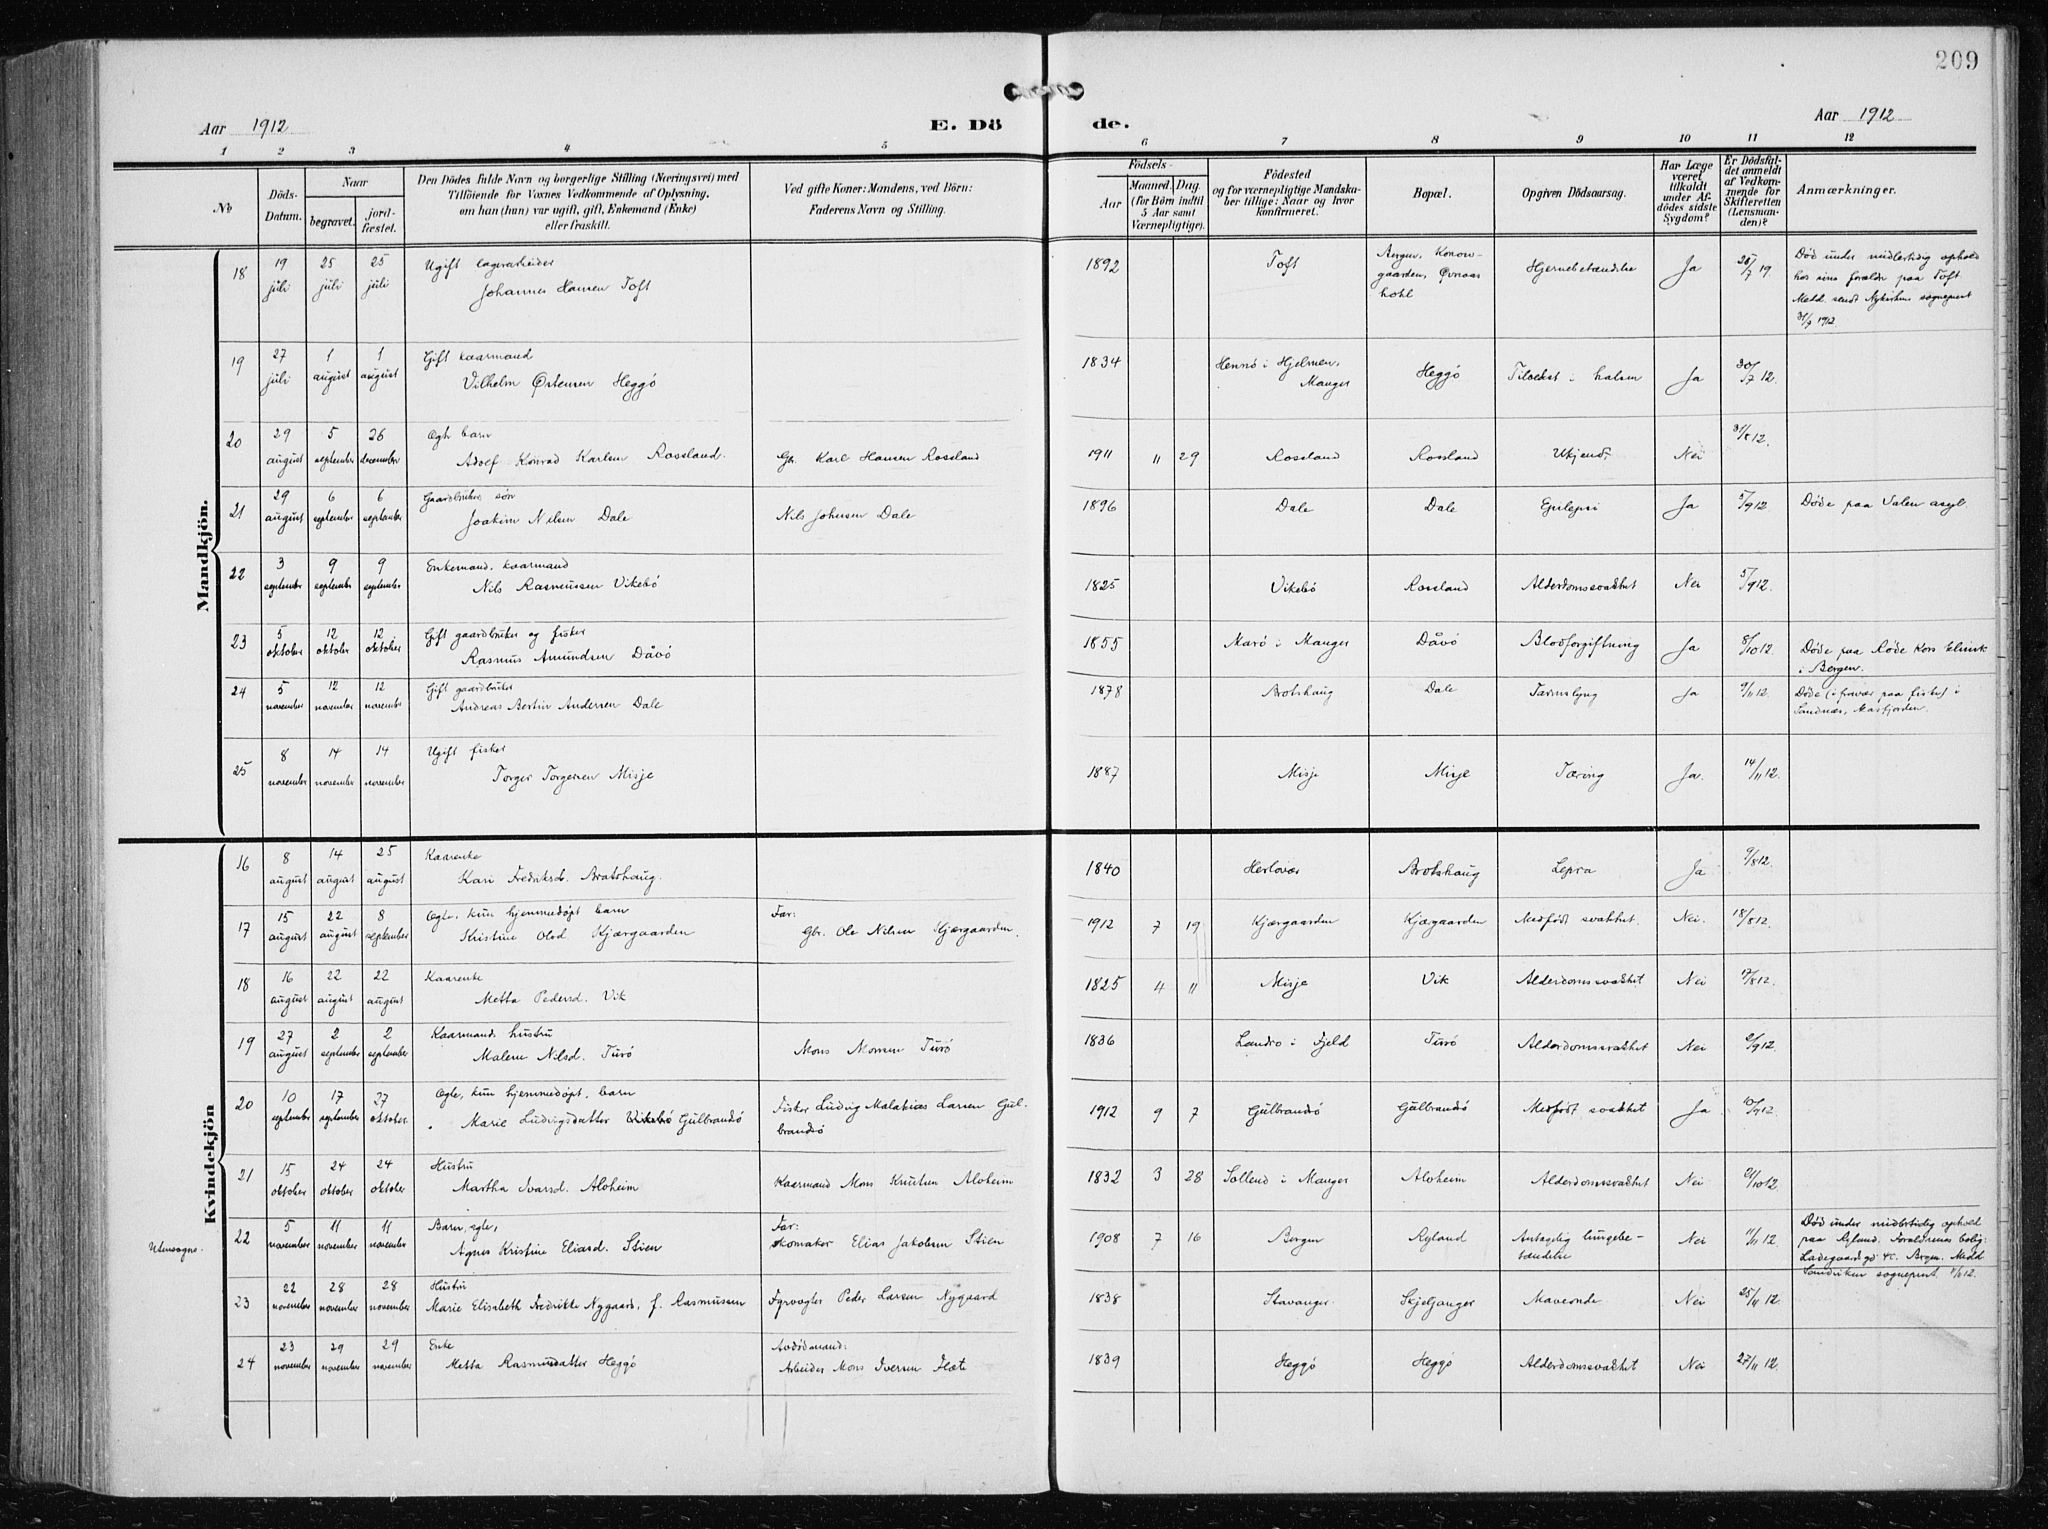 209
Aar 1912 E. Dö de. Aar 1912
1 2 3 4 5 6 7 8 9 10 11 12
No
Döds-Datum.
Naar
begravet.
jord-fæstet.
Den Dödes fulde Navn og borgerlige Stilling (Næringsvei) med
Tilföiende for Voxnes Vedkommende af Oplysning,
om han (hun) var ugift, gift, Enkemand (Enke)
eller fraskilt.
Ved gifte Koner: Mandens, ved Börn:
Faderens Navn og Stilling.
Födsels-
Aar
Maaned. Dag.
(for Börn indtil
5 Aar samt
Værnepligtige).
Födested
og for værnepligtige Mandska-
ber tillige: Naar og hvor
konfirmeret.
Bopæl.
Opgiven Dödsaarsag.
Har Læge
været
tilkaldt
under Af-
dödes sidste
Sygdom?
Er Dödsfal-
det anmeldt
af Vedkom-
mende for
Skifteretten
(Lensman-
den)?
Anmærkninger.
Mandkjön.
18 19 juli 25 juli 25 juli Ugift lagerarbeider
Johannes Hansen Toft 1892 Toft Bergen, Konow-
gaarden, Hjernebetændelse Ja 25/7 19. Død under midlertidig ophold
hos sine forældre paa Toft.
Meld. sendt Nykirkens sogneprest
31/7 1912
19 27 juli 1 august 1 august Gift kaarmand
Vilhelm Østensen Heggö 1834 Hennö i Hjelmen,
Manger Heggö Tilvekst i halsen Ja 30/7 12.
20 29 august 5 september 26 december Egte barn
Adolf Konrad Karlsen Rossland. Gbr. Karl Hansen Rossland 1911 11 29 Rossland Rossland Ukjendt Nei 31/8 12.
21 29 august 6 september 6 september Gaardbrukers søn
Joakim Nilsen Dale Nils Johnsen Dale 1896 Dale Dale Epilepsi Ja 5/9 12 Døde paa Valen asyl.
22 3 september 9 september 9 september Enkemand, kaarmand
Nils Rasmussen Vikebö 1825 Vikebö Rossland Alderdomssvakhet Nei 5/9 12.
23 5 oktober 12 oktober 12 oktober Gift gaardbruker og fisker
Rasmus Amundsen Dåvö 1855 Marö i Manger Dåvö Blodforgiftning Ja 8/10 12. Døde paa Røde Kors klinik
i Bergen.
24 5 november 12 november 12 november Gift gaardbruker
Andreas Bertin Andersen Dale 1878 Brotshaug Dale Tarmslyng Ja 9/11 12. Døde (i fravær paa fiske) i
Sandnæs, Masfjorden.
25 8 november 14 november 14 november Ugift fisker
Torger Torgersen Misje 1887 Misje Misje Tæring Ja. 14/11 12.
Kvindekjön
16 8 august 14 august 25 august Kaarenke
Kari Fredriksd. Brotshaug. 1840 Herlovær Brotshaug Lepra Ja 9/8 12.
17 15 august 22 august 8 september Egte, kun hjemmedöpt barn
Kristine Olsd Kjærgaarden Far:
Gbr. Ole Nilsen Kjærgaarden. 1912 7 19 Kjærgaarden Kjærgaarden Medfødt svakhet. Nei. 18/8 12.
18 16 august 22 august 22 august Kaarenke
Metta Pedersd. Vik 1825 4 11 Misje Vik Alderdomssvakhet Nei 17/8 12.
19 27 august 2 september 2 september Kaarmands hustru
Malene Nilsd. Turö Mons Monsen Turö 1836 Landro i Fjeld Turö Alderdomssvakhet Nei 2/9 12.
20 10 september 17 september 27 oktober Egte, kun hjemmedöpt, barn
Marie Ludvigsdatter Vikebö Gulbrandsö Fisker Ludvig Malakias Larsen Gul-
brandsö 1912 9 7 Gulbrandsö Gulbrandsö Medfødt svakhet Ja 10/9 12.
21 15 oktober 24 oktober 24 oktober Hustru
Martha Ivarsd. Aloheim Kaarmand Mons Knutsen Aloheim 1832 3 28 Sollend i Manger Aloheim Alderdomssvakhet Nei 21/10 12.
Utensogns. 22 5 november 11 november 11 november Barn, egte,
Agnes Kristine Eliasd. Stien Far:
Skomaker Elias Jakobsen Stien 1908 7 16 Bergen Ryland Antagelig lungebe-
tændelse Nei 11/11 12. Død under midlertidig ophold
paa Ryland. Forældrenes bolig:
Ladegaardsgd 4c. Bergen. Meld
Sandviken sogneprest. 11/11 12.
23 22 november 28 november 28 november Hustru
Marie Elisabeth Fredrikke Nygaard, f. Rasmussen Fyrvogter Peder Larsen Nygaard 1838 Stavanger. Skjeljanger Maveonde. Nei 25/11 12.
24 23 november 29 november 29 november Enke
Metta Rasmusdatter Heggö Avdödmand:
Arbeider Mons Iversen Flæte 1839 Heggö Heggö Alderdomssvakhet Nei 27/11 12.